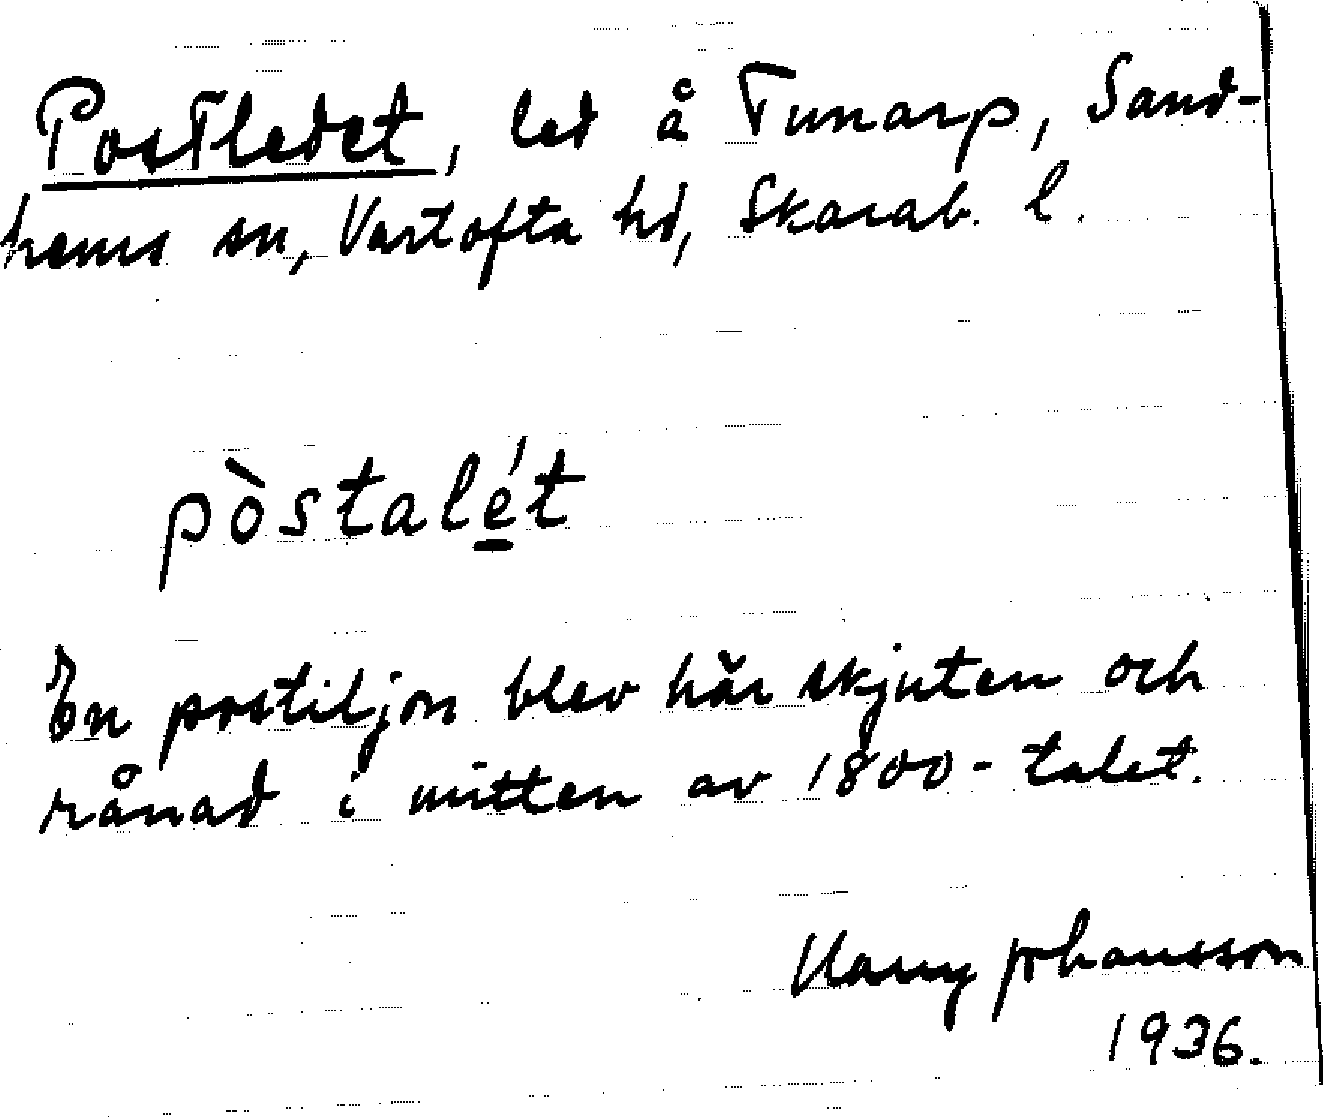 Postledet, led å Tunarp, Sand-
hems sn, Vartofta hd, Skarab. l.
pòstalé̱t
En postiljon blev här skjuten och
rånad i mitten av 1800-talet.
Harry Johansson
1936.